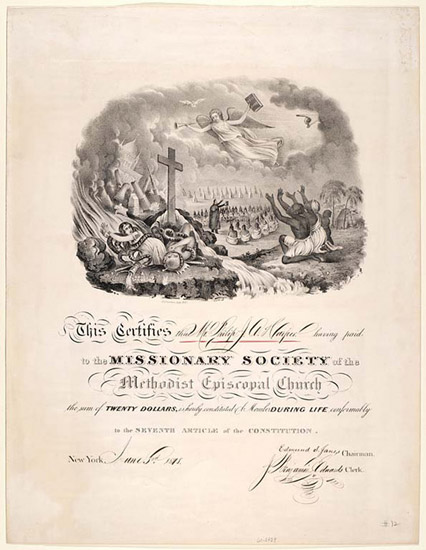 This Certifies that Mr. Philip J. A. Harper having paid
to the MISSIONARY SOCIETY of the
Methodist Episcopal Church
the sum of TWENTY DOLLARS, is hereby constituted a Member DURING LIFE conformably
to the SEVENTH ARTICLE of the CONSTITUTION.
Edmund S. Janes Chairman.
New York, June
Clerk.